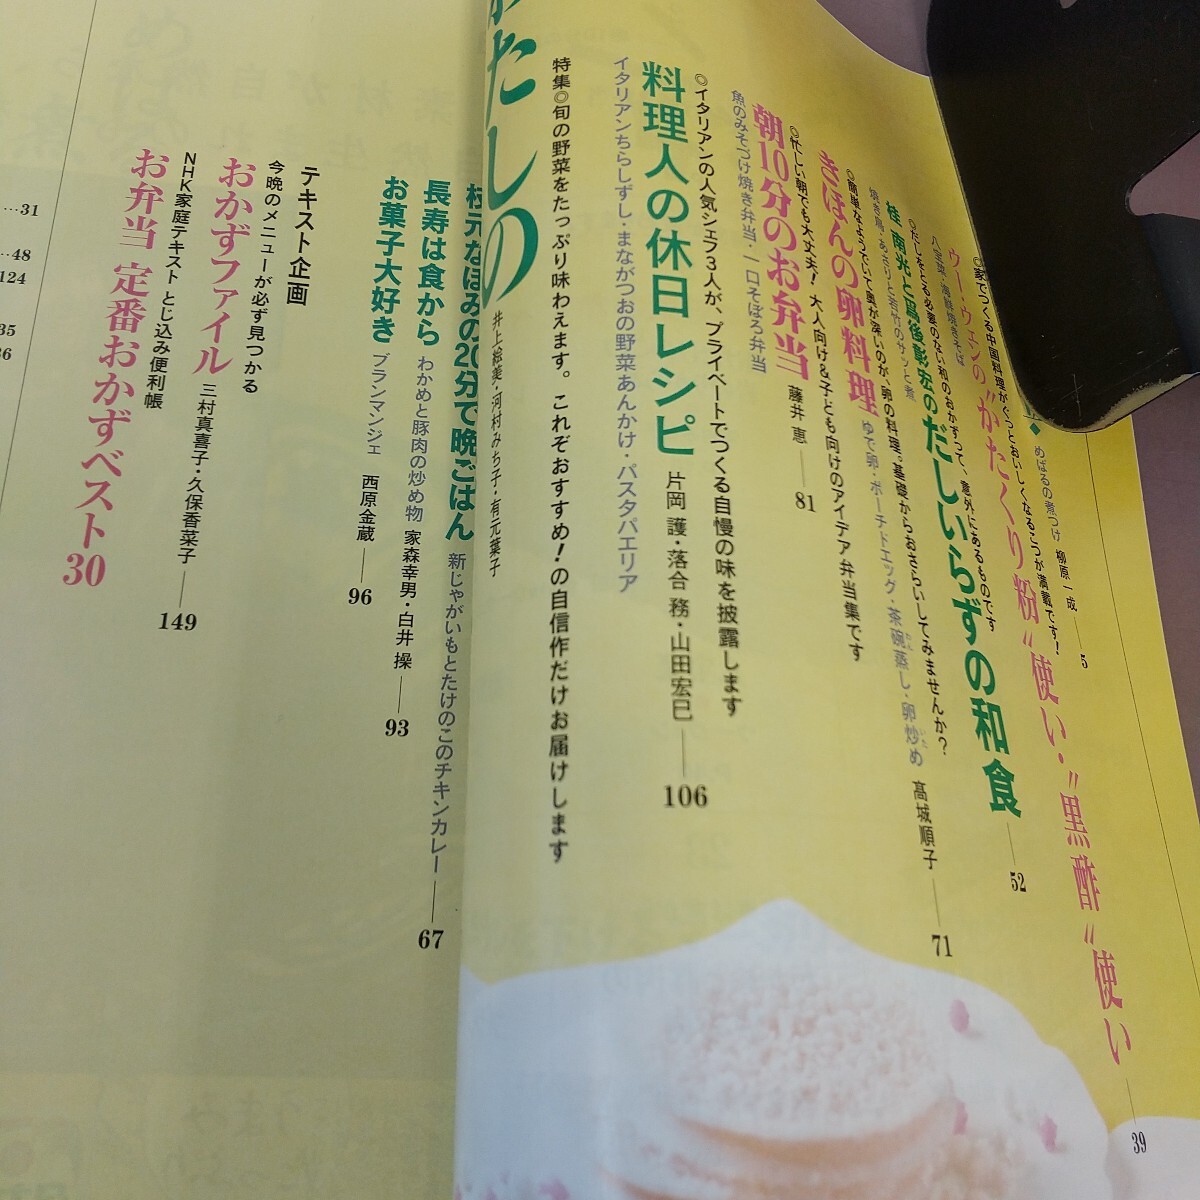 めばるの煮つけ 柳原一成 5
◎家でつくる中国料理がぐっとおいしくなるこつが満載です!
ウー・ウェンの"かたくり粉"使い・"黒酢"使い 39
八宝菜・海鮮焼きそば
◎だしをとる必要のない和のおかずって、意外にあるものです
桂 南光と馬後彰宏のだしいらずの和食 52
焼き鳥・あさりと若竹のサッと煮
◎簡単なようでいて奥が深いのが、卵の料理。基礎からおさらいしてみませんか?
きほんの卵料理 ゆで卵・ポーチドエッグ・茶碗蒸し・卵炒め 髙城順子 71
◎忙しい朝でも大丈夫! 大人向け&子ども向けのアイデア弁当集です
朝10分のお弁当 藤井 恵 81
魚のみそづけ焼き弁当・一口そぼろ弁当
◎イタリアンの人気シェフ3人が、プライベートでつくる自慢の味を披露します
料理人の休日レシピ 片岡 護・落合 務・山田宏巳 106
イタリアンちらしずし・まながつおの野菜あんかけ・パスタパエリア
特集◎旬の野菜をたっぷり味わえます。これぞおすすめ!の自信作だけお届けします
たしの 井上絵美・河村みち子・有元葉子
枝元なほみの20分で晩ごはん 新じゃがいもとたけのこのチキンカレー 67
長寿は食から わかめと豚肉の炒め物 家森幸男・白井 操 93
お菓子大好き ブランマンジェ 西原金蔵 96
テキスト企画
今晩のメニューが必ず見つかる
おかずファイル 三村真喜子・久保香菜子 149
NHK家庭テキスト とじ込み便利帳
お弁当 定番おかずベスト30
…31
…48
124
35
36